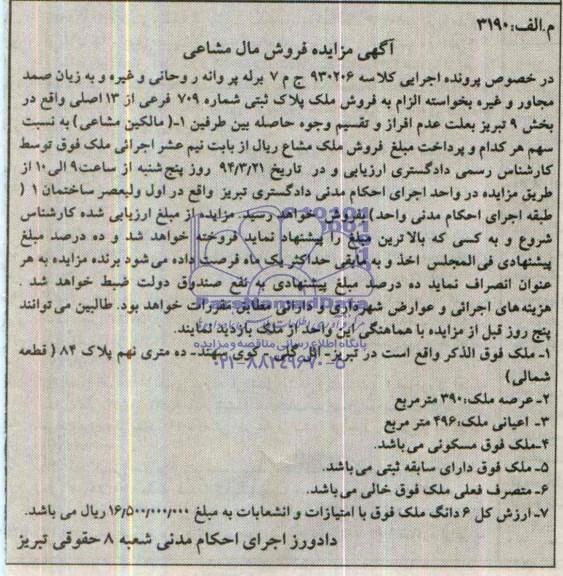 م.الف:۳۱۹۰
آگهی مزایده فروش مال مشاعی
در خصوص پرونده اجرایی کلاسه ۹۳۰۲۰۶ ج م ۷ برله پروانه روحانی و غیره و به زیان صمد
مجاور و غیره بخواسته الزام به فروش ملک پلاک ثبتی شماره ۷۰۹ فرعی از ۱۳ اصلی واقع در
بخش ۹ تبریز بعلت عدم افراز و تقسیم وجوه حاصله بین طرفین ۱-( مالکین مشاعی ) به نسبت
سهم هر کدام و پرداخت مبلغ فروش ملک مشاع ریال از بابت نیم عشر اجرائی ملک فوق توسط
کارشناس رسمی دادگستری ارزیابی و در تاریخ ۹۴/۳/۲۱ روز پنج شنبه از ساعت ۹ الی ۱۰ از
طریق مزایده در واحد اجرای احکام مدنی دادگستری تبریز واقع در اول ولیعصر ساختمان ۱ (
طبقه اجرای احکام مدنی واحد) بفروش خواهد رسید مزایده از مبلغ ارزیابی شده کارشناس
شروع و به کسی که بالاترین مبلغ را پیشنهاد نماید فروخته خواهد شد و ده درصد مبلغ
پیشنهادی فی المجلس اخذ و به مابقی حداکثر یک ماه فرصت داده می شود برنده مزایده به هر
عنوان انصراف نماید ده درصد مبلغ پیشنهادی به نفع صندوق دولت ضبط خواهد شد .
هزینه های اجرائی و عوارض شهرداری و دارائی مطابق مقررات خواهد بود. طالبین می توانند
پنج روز قبل از مزایده با هماهنگی این واحد از ملک بازدید نمایند.
پایگاه اطلاع رسانی مناقصه و مزایده
۱- ملک فوق الذکر واقع است در تبریز- ائل گلی - کوی سهند- ده متری نهم پلاک ۸۴ ( قطعه
۰۲۱-۸۸۳۴۹۶۷۰-۵
شمالی)
۲- عرصه ملک:۳۹۰ مترمربع
۳- اعیانی ملک:۴۹۶ متر مربع
۴-ملک فوق مسکونی می باشد.
۵- ملک فوق دارای سابقه ثبتی می باشد.
۶- متصرف فعلی ملک فوق خالی می باشد.
۷- ارزش کل ۶ دانگ ملک فوق با امتیازات و انشعابات به مبلغ ۱۶/۵۰۰/۰۰۰/۰۰۰ ریال می باشد.
دادورز اجرای احکام مدنی شعبه ۸ حقوقی تبریز